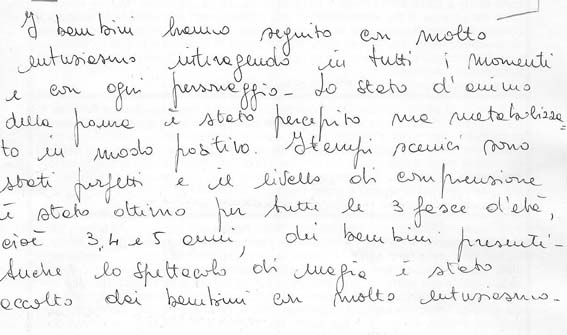 I bambini hanno seguito con molto
entusiasmo interagendo in tutti i momenti
e con ogni personaggio - Lo stato d'animo
della paura è stato percepito ma metabolizza=
to in modo positivo. I tempi scenici sono
stati perfetti e il livello di comprensione
è stato ottimo per tutte le 3 fasce d'età,
cioè 3, 4 e 5 anni, dei bambini presenti -
Anche lo spettacolo di magia è stato
accolto dai bambini con molto entusiasmo -